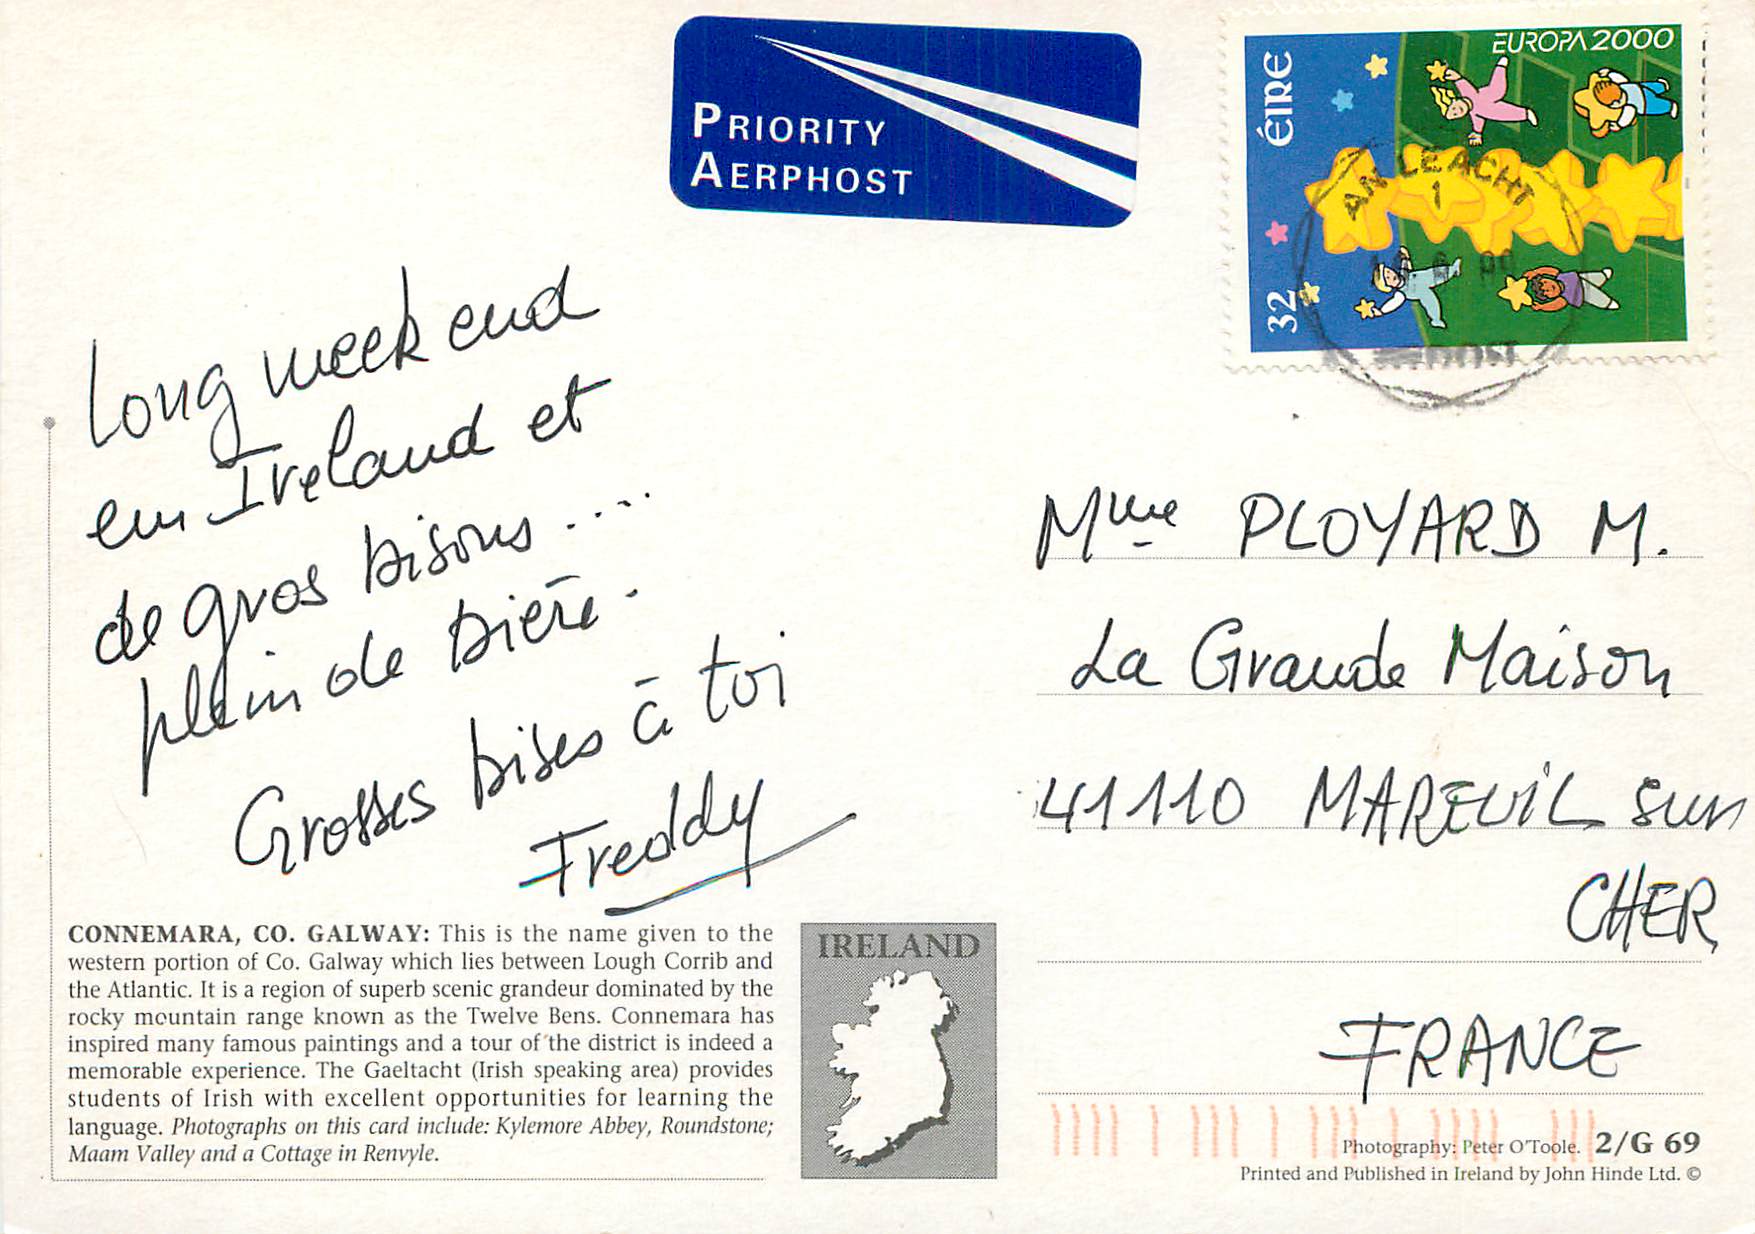 PRIORITY
AERPHOST
EUROPA 2000
ÉIRE
32
AN LEACHT
1
00
Long week end
en Ireland et
de gros bisons ....
plein de bière.
Grosses bises à toi
Freddy
Mme PLOYARD M.
La Grande Maison
41110 MAREUIL sur
CHER
FRANCE
CONNEMARA, CO. GALWAY: This is the name given to the
western portion of Co. Galway which lies between Lough Corrib and
the Atlantic. It is a region of superb scenic grandeur dominated by the
rocky mountain range known as the Twelve Bens. Connemara has
inspired many famous paintings and a tour of the district is indeed a
memorable experience. The Gaeltacht (Irish speaking area) provides
students of Irish with excellent opportunities for learning the
language. Photographs on this card include: Kylemore Abbey, Roundstone;
Maam Valley and a Cottage in Renvyle.
IRELAND
Photography: Peter O'Toole. 2/G 69
Printed and Published in Ireland by John Hinde Ltd. ©